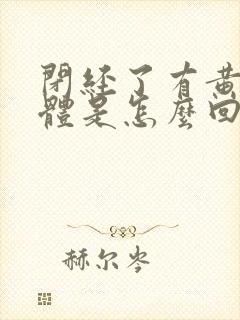 閉經了有黃
體是怎麼回
赫尔岑